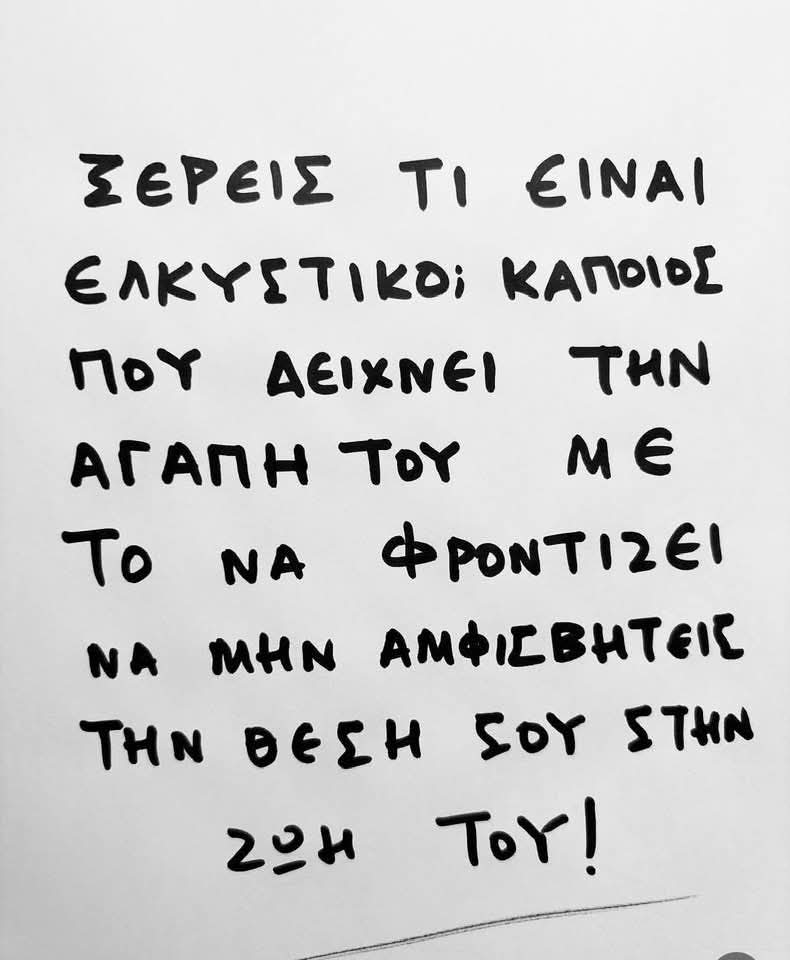 ΞΕΡΕΙΣ ΤΙ ΕΙΝΑΙ
ΕΛΚΥΣΤΙΚΟ; ΚΑΠΟΙΟΣ
ΠΟΥ ΔΕΙΧΝΕΙ ΤΗΝ
ΑΓΑΠΗ ΤΟΥ ΜΕ
ΤΟ ΝΑ ΦΡΟΝΤΙΖΕΙ
ΝΑ ΜΗΝ ΑΜΦΙΣΒΗΤΕΙΣ
ΤΗΝ ΘΕΣΗ ΣΟΥ ΣΤΗΝ
ΖΩΗ ΤΟΥ!